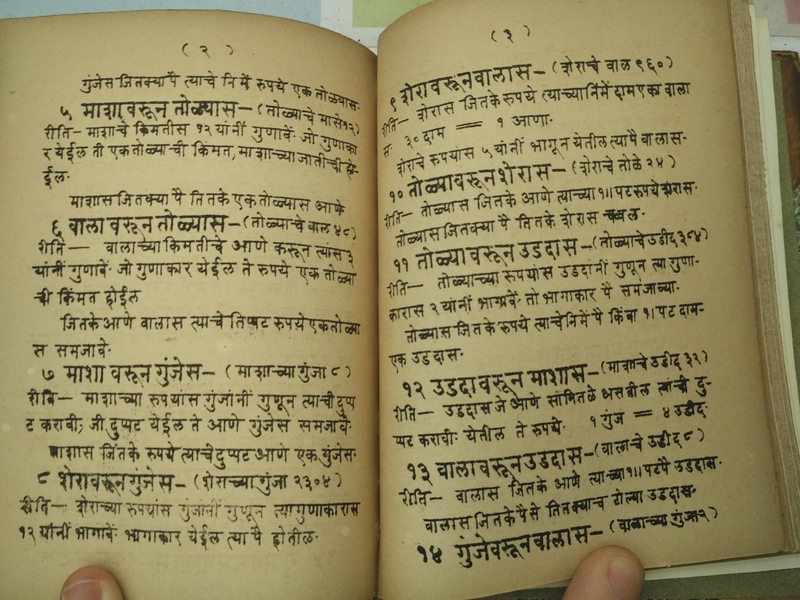 ( २ )
गुंजेस जितक्या पै त्याचे निमें रुपये एक तोळ्यास·
५ माशावरून तोळ्यास— (तोळ्याचे मासे १२)
रीति— माशाचे किमतीस १२ यांनीं गुणावें· जो गुणाका
र येईल ती एक तोळ्याची किंमत, माशाच्या जातीची हो
ईल·
माशास जितक्या पै तितके एक तोळ्यास आणे
६ वालावरून तोळ्यास— (तोळ्याचे वाल ४८)
रीति— वालाच्या किमतीचे आणे करून त्यांस ३
यांनीं गुणावें· जो गुणाकार येईल ते रुपये एक तोळ्या
ची किंमत होईल
जितके आणे वालास त्याचे तिप्पट रुपये एक तोळ्या
स समजावे·
७ माशावरून गुंजेस— (माशाच्या गुंजा ८)
रीति— माशाच्या रुपयांस गुंजांनीं गुणून त्याची दुप्प
ट करावी; जी दुप्पट येईल ते आणे गुंजेस समजावे·
माशास जितके रुपये त्याचे दुप्पट आणे एक गुंजेस·
८ शेरावरून गुंजेस— (शेराच्या गुंजा २३०४)
रीति— शेराच्या रुपयांस गुंजांनीं गुणून त्या गुणाकारास
१२ यांनीं भागावें· भागाकार येईल त्या पै होतील·
( ३ )
९ शेरावरून वालास— (शेराचे वाल ९६०)
रीति— शेरास जितके रुपये त्याच्या निमें दाम एका वाला
स· ३० दाम = १ आणा·
शेराचे रुपयांस ५ यांनीं भागून येतील त्या पै वालास·
१० तोळ्यावरून शेरास— (शेराचे तोळे २४)
रीति— तोळ्यास जितके आणे त्याच्या १॥ पट रुपये शेरास·
तोळ्यास जितक्या पै तितके शेरास
११ तोळ्यावरून उडदास— (तोळ्याचे उडीद ३८४)
रीति— तोळ्याच्या रुपयांस उडदांनीं गुणून त्या गुणा-
कारास २ यांनीं भागावें· तो भागाकार पै समजाव्या·
तोळ्यास जितके रुपये त्याचे निमे पै किंवा १। पट दाम-
एक उडदास·
१२ उडदावरून माशास— (माशाचे उडीद ३२)
रीति— उडदास जे आणे सांगितले असतील त्यांची दु-
प्पट करावी· येतील ते रुपये· १ गुंज = ४ उडीद·
१३ वालावरून उडदास— (वालाचे उडीद ८)
रीति— वालास जितके आणे त्याच्या १॥ पट पै उडदास·
वालास जितके पैसे तितक्याच टोल्या उडदास·
१४ गुंजेवरून वालास— (वालाच्या गुंजा २)